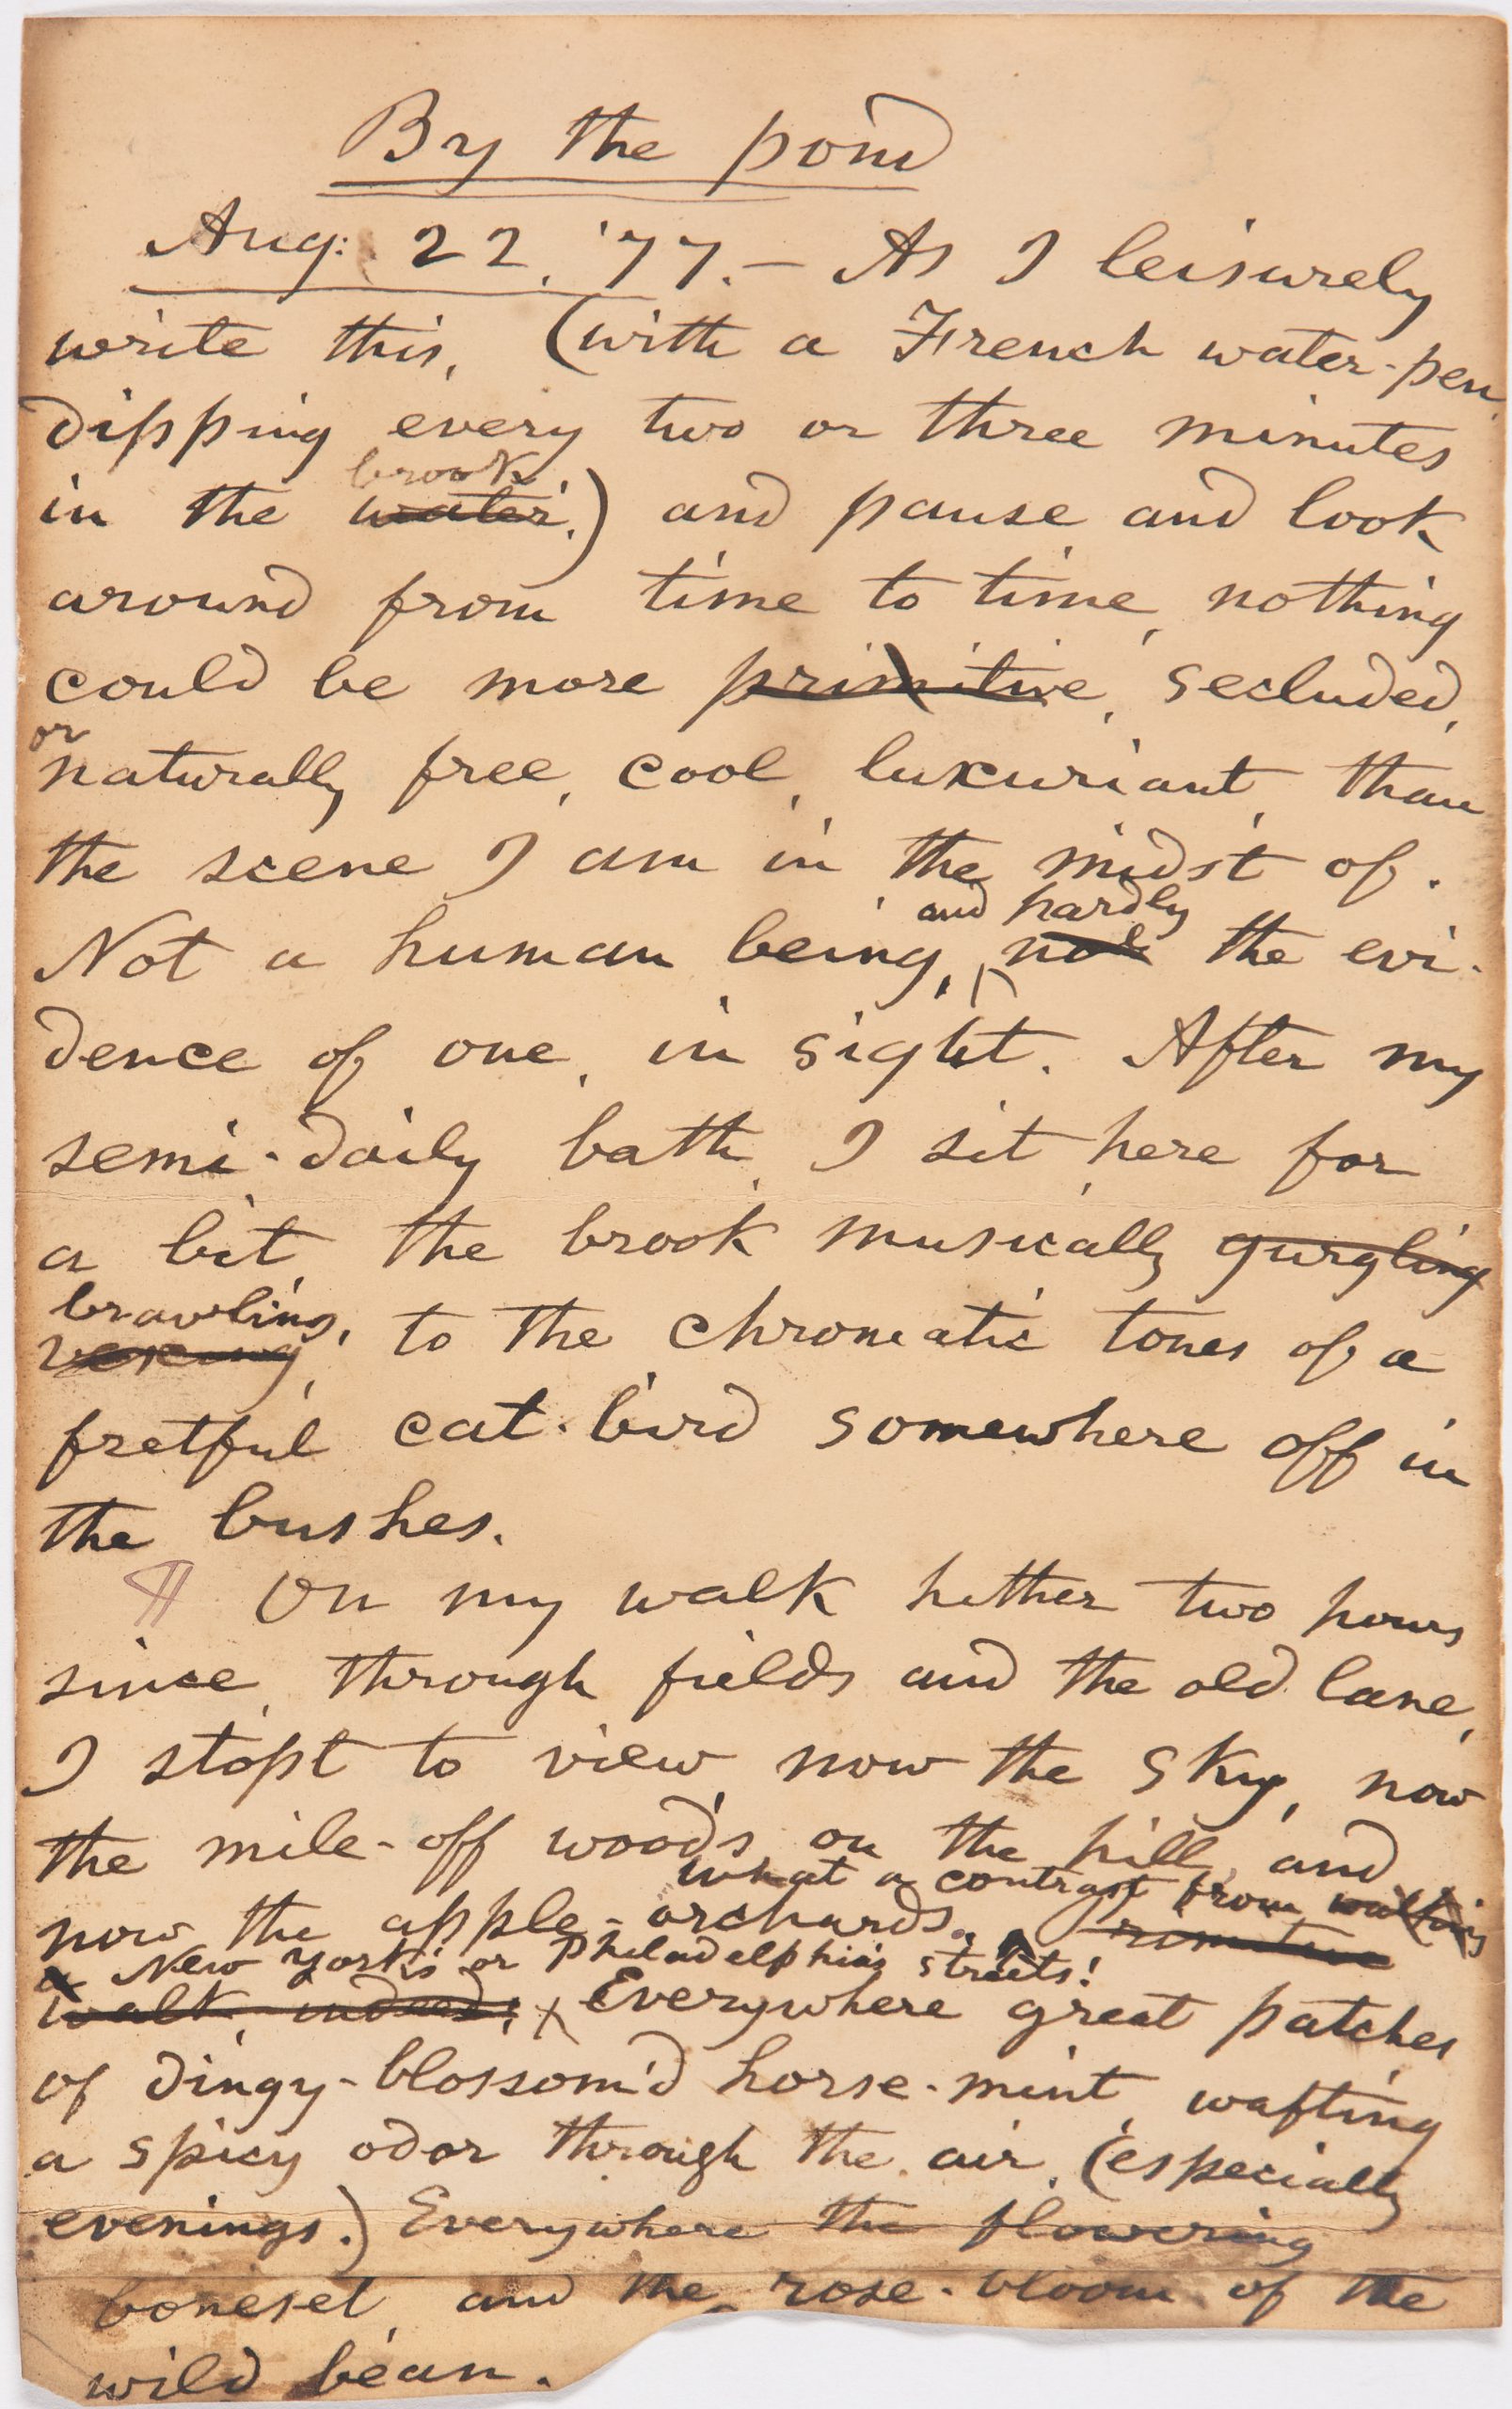 By the pond
Aug: 22, '77.— As I leisurely
write this, (with a French water-pen,
dipping every two or three minutes
brook
in the water.) and pause and look
around from time to time, nothing
could be more primitive, secluded,
or
naturally free, cool, luxuriant, than
the scene I am in the midst of.
and hardly
Not a human being, not the evi-
dence of one, in sight. After my
semi-daily bath, I sit here for
a bit, the brook musically gurgling
brawling,
to the chromatic tones of a
fretful cat-bird somewhere off in
the bushes.
¶ On my walk hither two hours
since, through fields and the old lane,
I stopt to view, now the sky, now
the mile-off woods on the hill, and
what a contrast from walking
now the apple-orchards.
New York's or Philadelphia's streets!
walk, indeed! Everywhere great patches
of dingy-blossom'd horse-mint, wafting
a spicy odor through the air, (especially
evenings.) Everywhere the flowering
boneset, and the rose-bloom of the
wild bean.